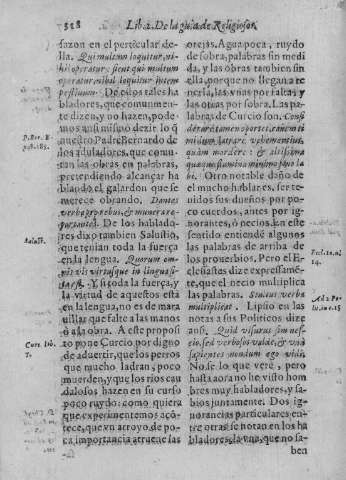 328 Lib. 2. De la guia de Religiosos
sazon en el perticular de-
lla. Qui multum loquitur, ni-
hil operatur; sicut qui multum
operatur, nihil loquitur intem
pestiuum. De estos tales ha
bladores, que comunmen-
te dizen, y no hazen, pode-
mos ansi mismo dezir lo q̃
nuestro Padre Bernardo de
los aduladores, que comu-
tan las obras en palabras,
pretendiendo alcançar ha
blando el galardon que se
merece obrando. Dantes
verba pro rebus, & munera re
portantes. De los hablado-
res dixo tambien Salustio,
que tenian toda la fuerça
en la lengua. Quorum om-
nis vis virtusque in lingua si-
ta est. Y si toda la fuerça, y
la virtud de aquestos està
en la lengua, no es de mara
uillar que falte a las manos
ò a la obra. A este proposi
to pone Curcio por digno
de aduertir, que los perros
que mucho ladran, poco
muerden, y que los rios cau
dalosos hazen en su curso
poco ruydo: como quiera
que experimentemos açò-
tece, que vn arroyo, de po-
ca importancia atruene las
P. Ber. E
Salust.
Curt. lib.
7.
orejas. Agua poca, ruydo
de sobra, palabras sin medi
da, y las obras tambien sin
ella, porque no llegan a ne
rla, las vnas por faltas, y las
otras por sobra. Las pa-
labras de Curcio son. Consi
derandum
midum latrare vehementius,
quàm mordere: & altissima
quaeque flumina minimo sono la
bi. Otro notable daño de
el mucho hablar es, ser te-
nidos sus dueños por po-
co cuerdos, antes por ig-
norantes, ò necios. En este
sentido entendi algunos
las palabras de arriba de
los prouerbios, Pero el Ec
clesiastes dize expressamẽ-
te, que el necio multiplica
las palabras. Stultus verba
multiplicat. Lipsio en las
notas a sus Politicos dize
ansi. Quid visurus sim nes-
cio, sed verbosos valde, & viros
sapientes nondum ego vidi.
No se lo que vere, pero
hasta aora no he visto hom
bres muy habladores, y sa-
bios juntamente. Dos ig-
norancias particulares en-
tre otras se notan en los ha
bladores, la vna, que no sa-
Eccl. 10. n.
14.
Ad 1. Po-
ben